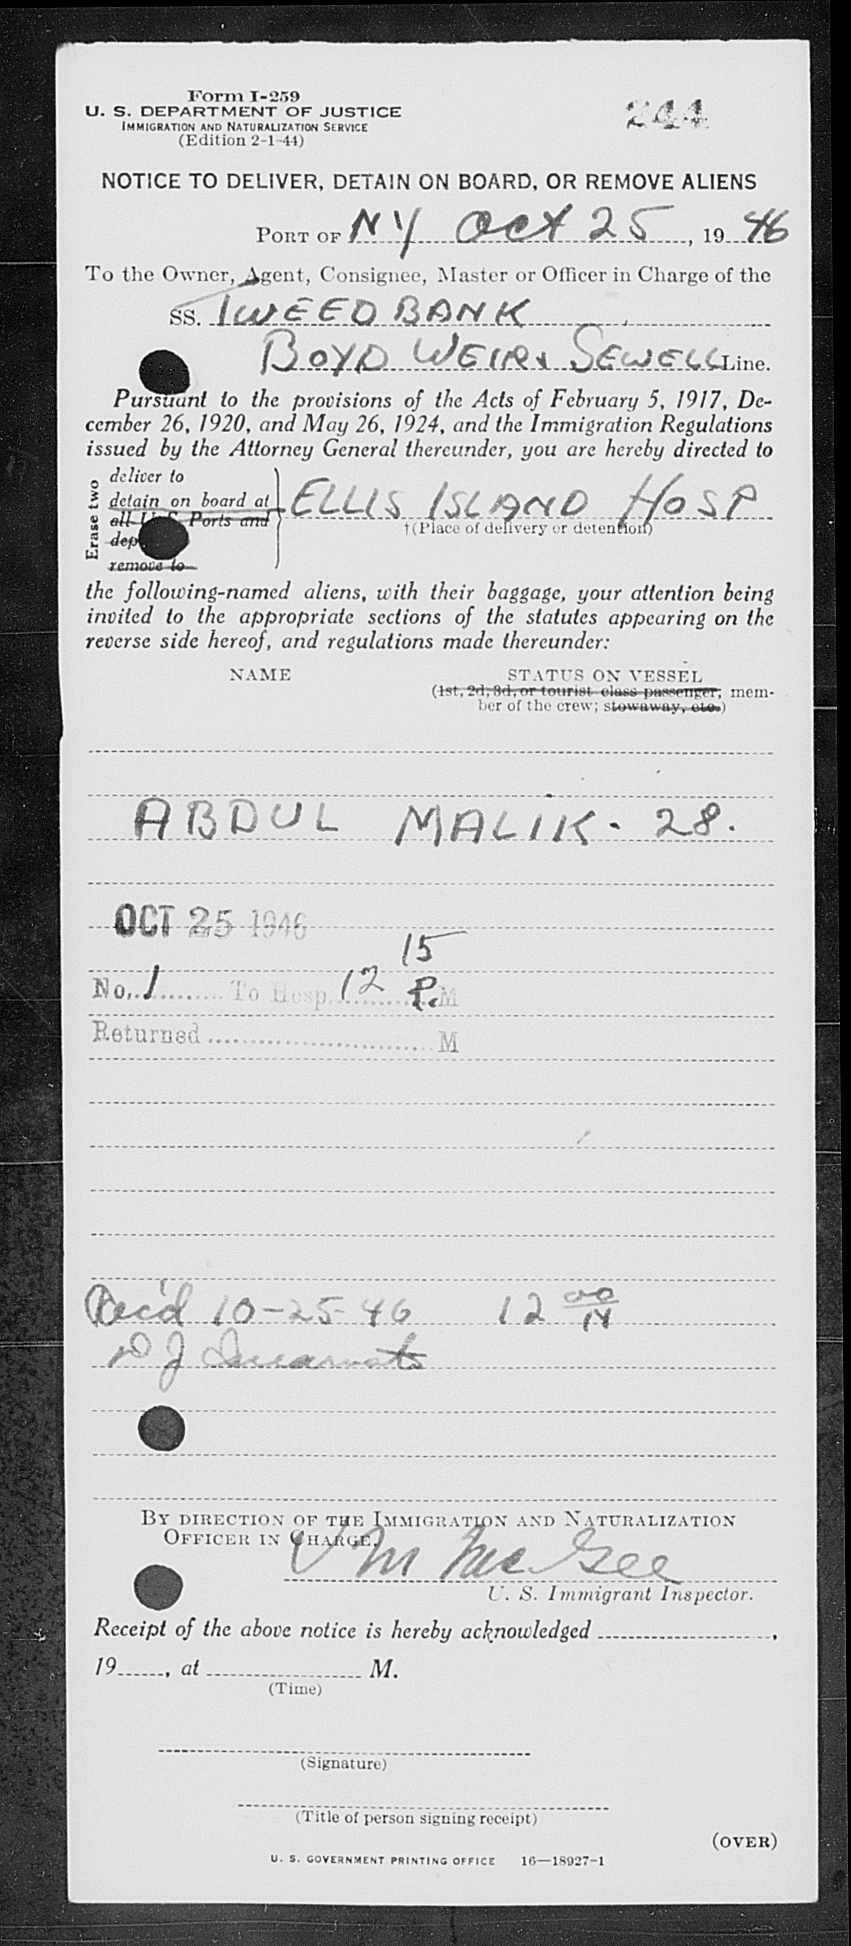 Form I-259
U. S. DEPARTMENT OF JUSTICE
IMMIGRATION AND NATURALIZATION SERVICE
(Edition 2-1-44)
244
NOTICE TO DELIVER, DETAIN ON BOARD, OR REMOVE ALIENS
PORT OF NY Oct 25, 19 46
To the Owner, Agent, Consignee, Master or Officer in Charge of the
SS. TWEEDBANK
BOYD WEIR & SEWELL Line.
Pursuant to the provisions of the Acts of February 5, 1917, De-
cember 26, 1920, and May 26, 1924, and the Immigration Regulations
issued by the Attorney General thereunder, you are hereby directed to
Erase two
deliver to
detain on board at
all U.S. Ports and
dep
remove to
ELLIS ISLAND HOSP
†(Place of delivery or detention)
the following-named aliens, with their baggage, your attention being
invited to the appropriate sections of the statutes appearing on the
reverse side hereof, and regulations made thereunder:
NAME STATUS ON VESSEL
(1st, 2d, 3d, or tourist class passenger; mem-
ber of the crew; stowaway, etc.)
ABDUL MALIK - 28.
OCT 25 1946
No. 1 To Hosp. 12 15 P.M
Returned M
Rec'd 10-25-46 12 00
BY DIRECTION OF THE IMMIGRATION AND NATURALIZATION
OFFICER IN CHARGE.
V M McGee
U. S. Immigrant Inspector.
Receipt of the above notice is hereby acknowledged ,
19 , at M.
(Time)
(Signature)
(Title of person signing receipt)
(OVER)
U. S. GOVERNMENT PRINTING OFFICE 16—18927-1